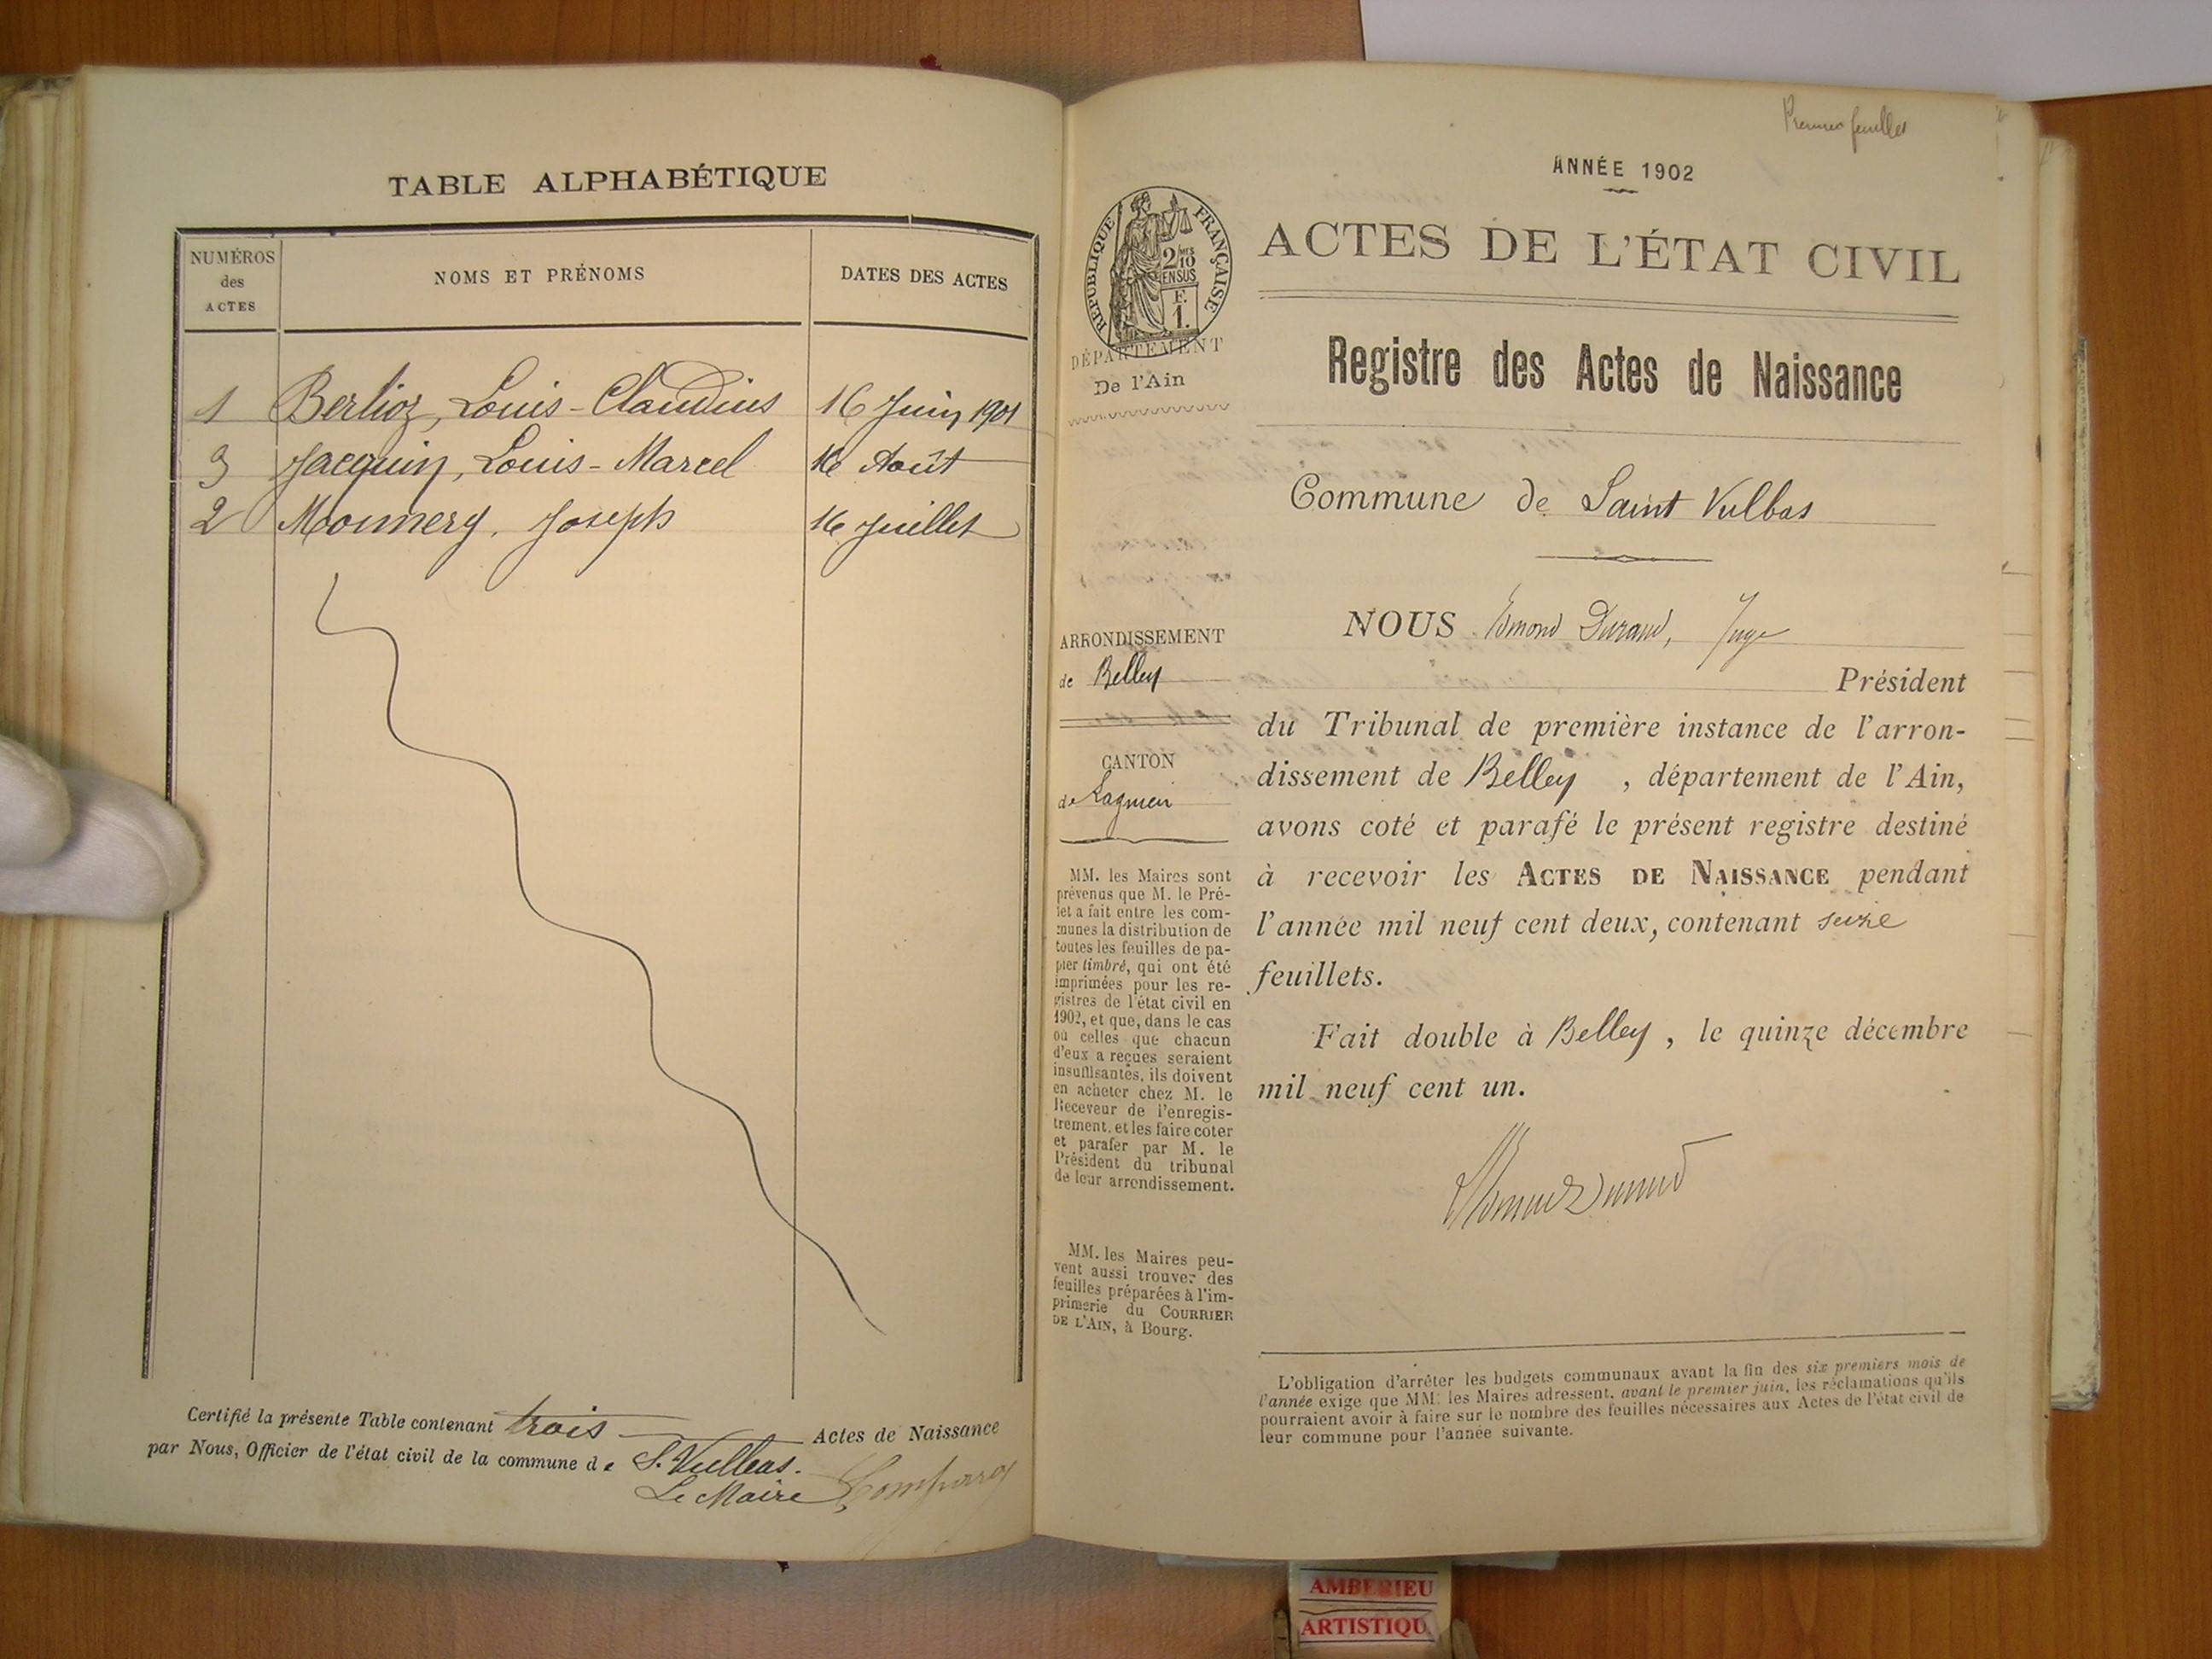 TABLE ALPHABÉTIQUE
NUMÉROS
des
ACTES
NOMS ET PRÉNOMS
DATES DES ACTES
1 Berlioz, Louis-Claudius 16 Juin 1901
3 Jacquin, Louis-Marcel 16 Août
2 Monnery, Joseph 16 Juillet
Certifié la présente Table contenant trois Actes de Naissance
par Nous, Officier de l'état civil de la commune de S. Vulbas.
Le Maire
Premier feuillet
ANNÉE 1902
RÉPUBLIQUE FRANÇAISE
2/10
EN SUS
F.
1.
DÉPARTEMENT
De l'Ain
ACTES DE L'ÉTAT CIVIL
Registre des Actes de Naissance
Commune de Saint Vulbas
ARRONDISSEMENT
de Belley
CANTON
de Lagnieu
MM. les Maires sont
prévenus que M. le Pré-
fet a fait entre les com-
munes la distribution de
toutes les feuilles de pa-
pier timbré, qui ont été
imprimées pour les re-
gistres de l'état civil en
1902, et que, dans le cas
où celles que chacun
d'eux a reçues seraient
insuffisantes, ils doivent
en acheter chez M. le
Receveur de l'enregis-
trement, et les faire coter
et parafer par M. le
Président du tribunal
de leur arrondissement.
MM. les Maires peu-
vent aussi trouver des
feuilles préparées à l'im-
primerie du COURRIER
DE L'AIN, à Bourg.
NOUS Edmond Durand, Juge
Président
du Tribunal de première instance de l'arron-
dissement de Belley, département de l'Ain,
avons coté et parafé le présent registre destiné
à recevoir les ACTES DE NAISSANCE pendant
l'année mil neuf cent deux, contenant seize
feuillets.
Fait double à Belley, le quinze décembre
mil neuf cent un.
L'obligation d'arrêter les budgets communaux avant la fin des six premiers mois de
l'année exige que MM. les Maires adressent, avant le premier juin, les réclamations qu'ils
pourraient avoir à faire sur le nombre des feuilles nécessaires aux Actes de l'état civil de
leur commune pour l'année suivante.
AMBERIEU
ARTISTIQU